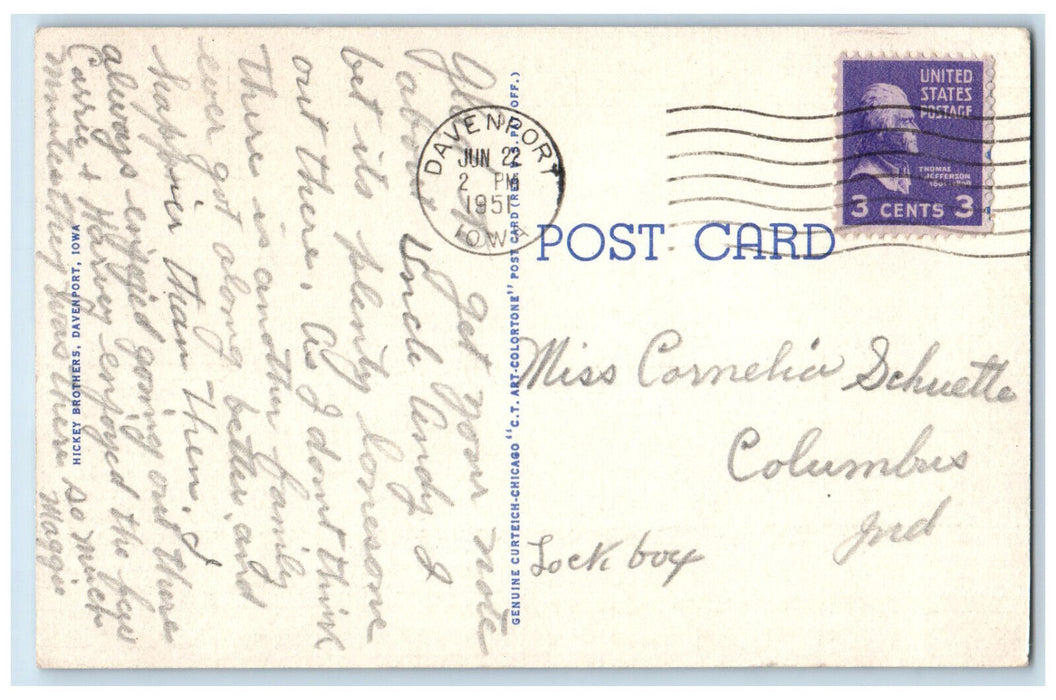 Glad to get your note
about Uncle Andy &
but its plenty lonesome
out there. As I dont think
there is another family
ever got along better, and
happier than them. I
always enjoyed going out there
Carrie & Harvey enjoyed the few
minutes they was there so much
Maggie
HICKEY BROTHERS, DAVENPORT, IOWA
GENUINE CURTEICH-CHICAGO "C.T. ART-COLORTONE" POST CARD (REG. U.S. PAT. OFF.)
DAVENPORT
JUN 22
2 PM
1951
IOWA
UNITED
STATES
POSTAGE
THOMAS
JEFFERSON
3 CENTS 3
POST CARD
Miss Cornelia Schuette
Columbus
Ind
Lock box